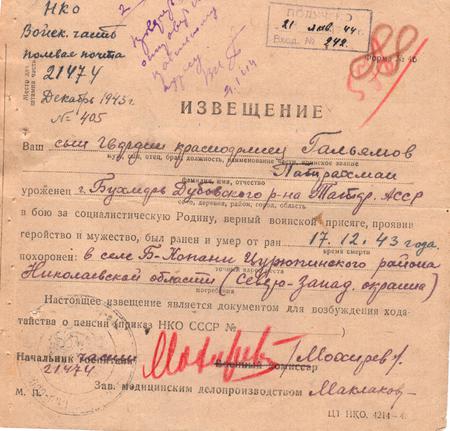 НКО
Войск. часть
полевая почта
21474
Декабрь 1943 г.
№ 405
Место для штампа части
2
ПОЛУЧЕНО
21 янв. 44 г.
Вход. № 242
Форма № 4б
21.1.44
ИЗВЕЩЕНИЕ
Ваш сын гвардии красноармеец Гальямов
муж, сын, отец, брат, должность, наименование части, воинское звание
фамилия, имя, отчество
уроженец г. Дубовского р-на АССР
село, деревня, район, город, область
в бою за социалистическую Родину, верный воинской присяге, проявив
геройство и мужество, был ранен и умер от ран 17.12.43 года
время смерти
похоронен: в селе Б-Копани Цурюпинского района
точный
Николаевской области (Северо-Запад. окраина)
погребения
Настоящее извещение является документом для возбуждения хода-
тайства о пенсии (приказ НКО СССР № )
Начальник части
21474
Мохирев
Военный комиссар
/Мохирев/
М. П.
Зав. медицинским делопроизводством Маклаков
ЦТ НКО. 4214—4